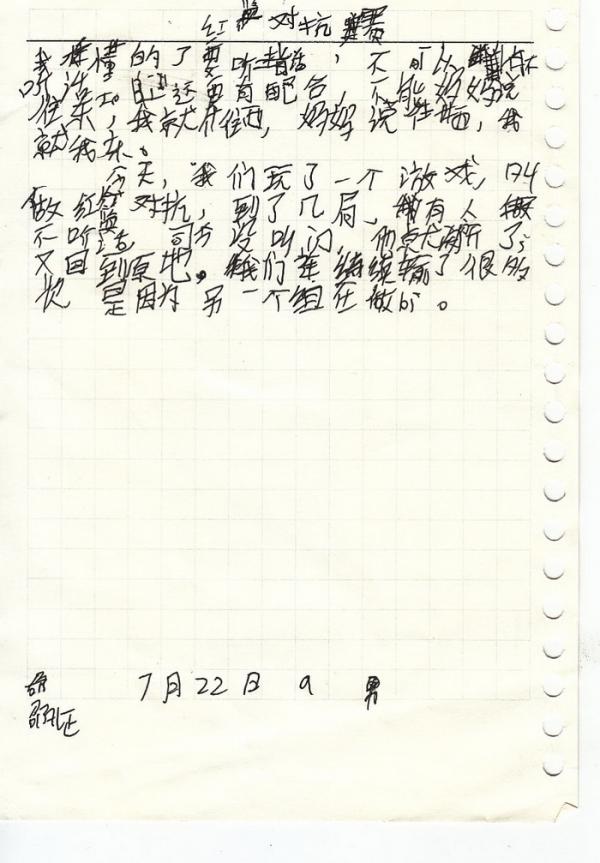 红蓝对抗赛
我懂的了要听指话，不可以
听话。而且还要有配合，不能妈妈说
往东，我就往西，妈妈说往西，我
就我东。
今天，我们玩了一个游戏，叫
做红蓝对抗，到了几局，有人
不听话，司方没叫闪，他就闪了，
又回到原地。我们连续输了很多
次，是因为另一个组在做。
7月22日 9 男